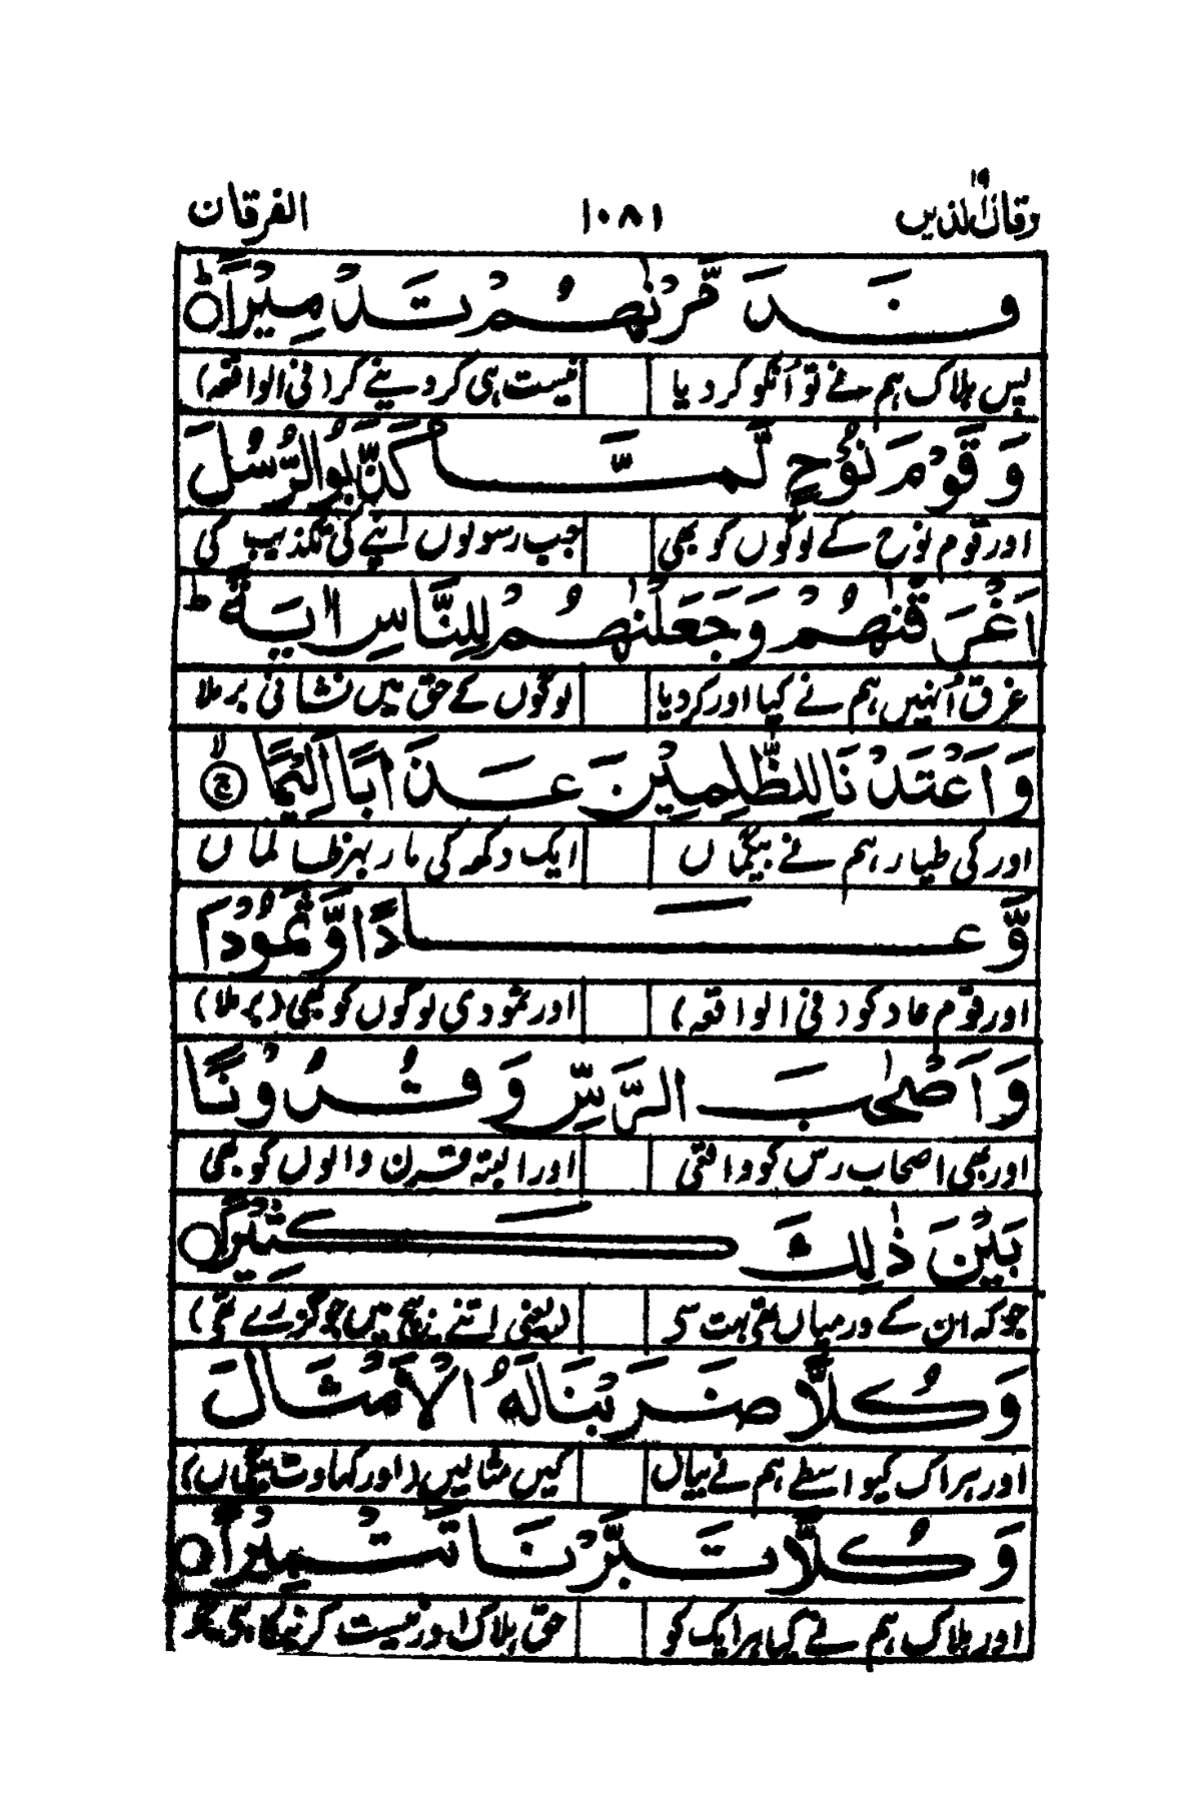 وقال الذین ۱۹ ۱۰۸۱ الفرقان
فَدَمَّرْنٰهُمْ تَدْمِيْرًاؕ
پس ہلاک ہم نے تو اُنکو کر دیا نیست ہی کر دینے کر (فی الواقعہ)
وَقَوْمَ نُوْحٍ لَّمَّا كَذَّبُوا الرُّسُلَ
اور قوم نوح کے لوگوں کو بھی جب رسولوں اپنے کی تکذیب کی
اَغْرَقْنٰهُمْ وَجَعَلْنٰهُمْ لِلنَّاسِ اٰيَةًؕ
غرق اُنہیں ہم نے کیا اور کر دیا لوگوں کے حق میں نشانی برملا
وَاَعْتَدْنَا لِلظّٰلِمِيْنَ عَذَابًا اَلِيْمًا
اور کی طیار ہم نے بیگماں ایک دکھ کی مار بہر ظالماں
وَّعَادًا وَّثَمُوْدَا۟
اور قوم عاد کو (فی الواقعہ) اور ثمودی لوگوں کو بھی (برملا)
وَاَصْحٰبَ الرَّسِّ وَقُرُوْنًا
اور بھی اصحاب رس کو واقعی اور البتہ قرن والوں کو بھی
بَيْنَ ذٰلِكَ كَثِيْرًا
جو کہ ان کے درمیاں تھے بہت سی (یعنی اتنے بیچ میں جو گزرے تھے)
وَكُلًّا ضَرَبْنَا لَهُ الْاَمْثَالَ
اور ہر اک کیواسطے ہم نے بیاں کیں مثالیں (اور کہاوت بیگماں)
وَكُلًّا تَبَّرْنَا تَتْبِيْرًا
اور ہلاک ہم نے کیا ہر ایک کو حق ہلاک اور نیست کرنیکا